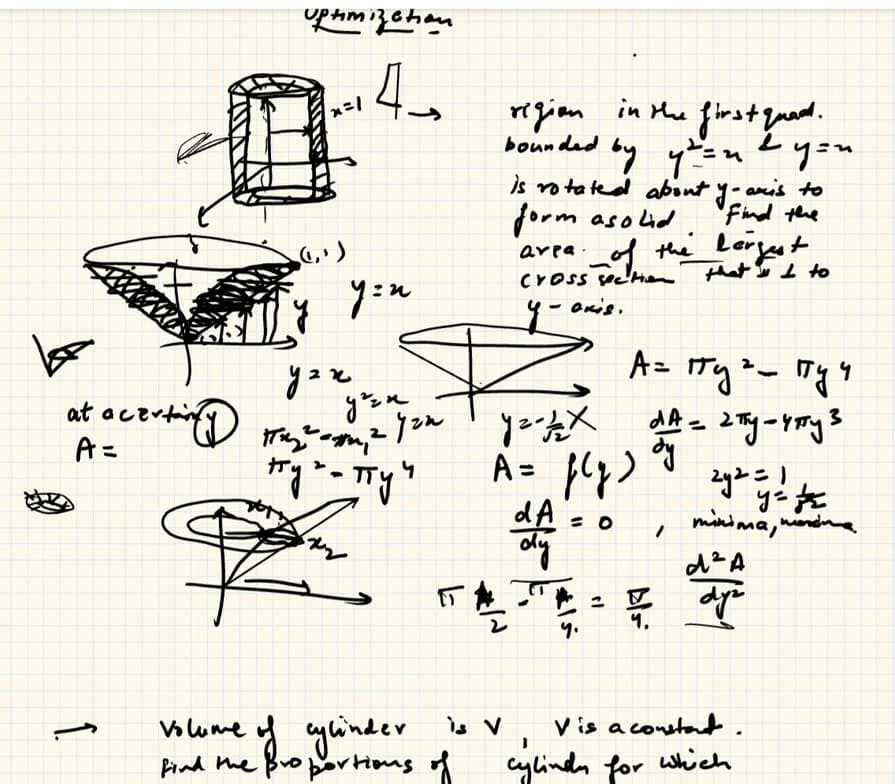 Optimization
x=1
4 →
region in the first quad.
bounded by y²=x & y=x
is rotated about y-axis to
form a solid Find the
area of the largest
cross section that is ⊥ to
y-axis.
(1,1)
y=x
y
y=x
y²=x
y=x
at a certain y
A=
πx₂²-πx₁²
πy²-πy⁴
x₁
x₂
y=1/√2
A= f(y)
dA/dy = 0, minima, maxima
A= πy²-πy⁴
dA/dy = 2πy-4πy³
2y²=1
y=1/√2
d²A/dy²
π/2 - π/4 = π/4.
→ Volume of cylinder is V, V is a constant.
Find the proportions of cylinder for which